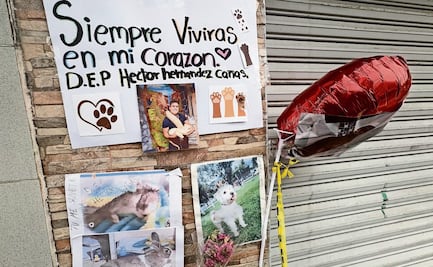 Siempre Vivirás
en mi Corazon.
D.E.P Hector Hernandez Cañas.